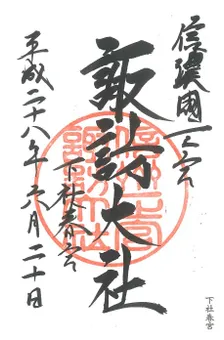 信濃國一之宮
諏訪大社
下社春宮
平成二十八年六月二十日
下社春宮